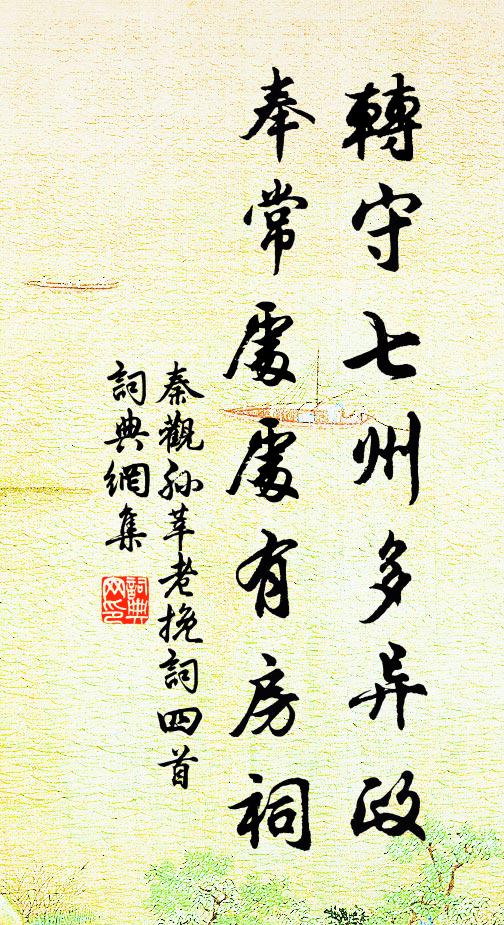 轉守七州多异政
奉常處處有房祠
秦觀孫莘老挽詞四首
詞典網集
詞典
网印